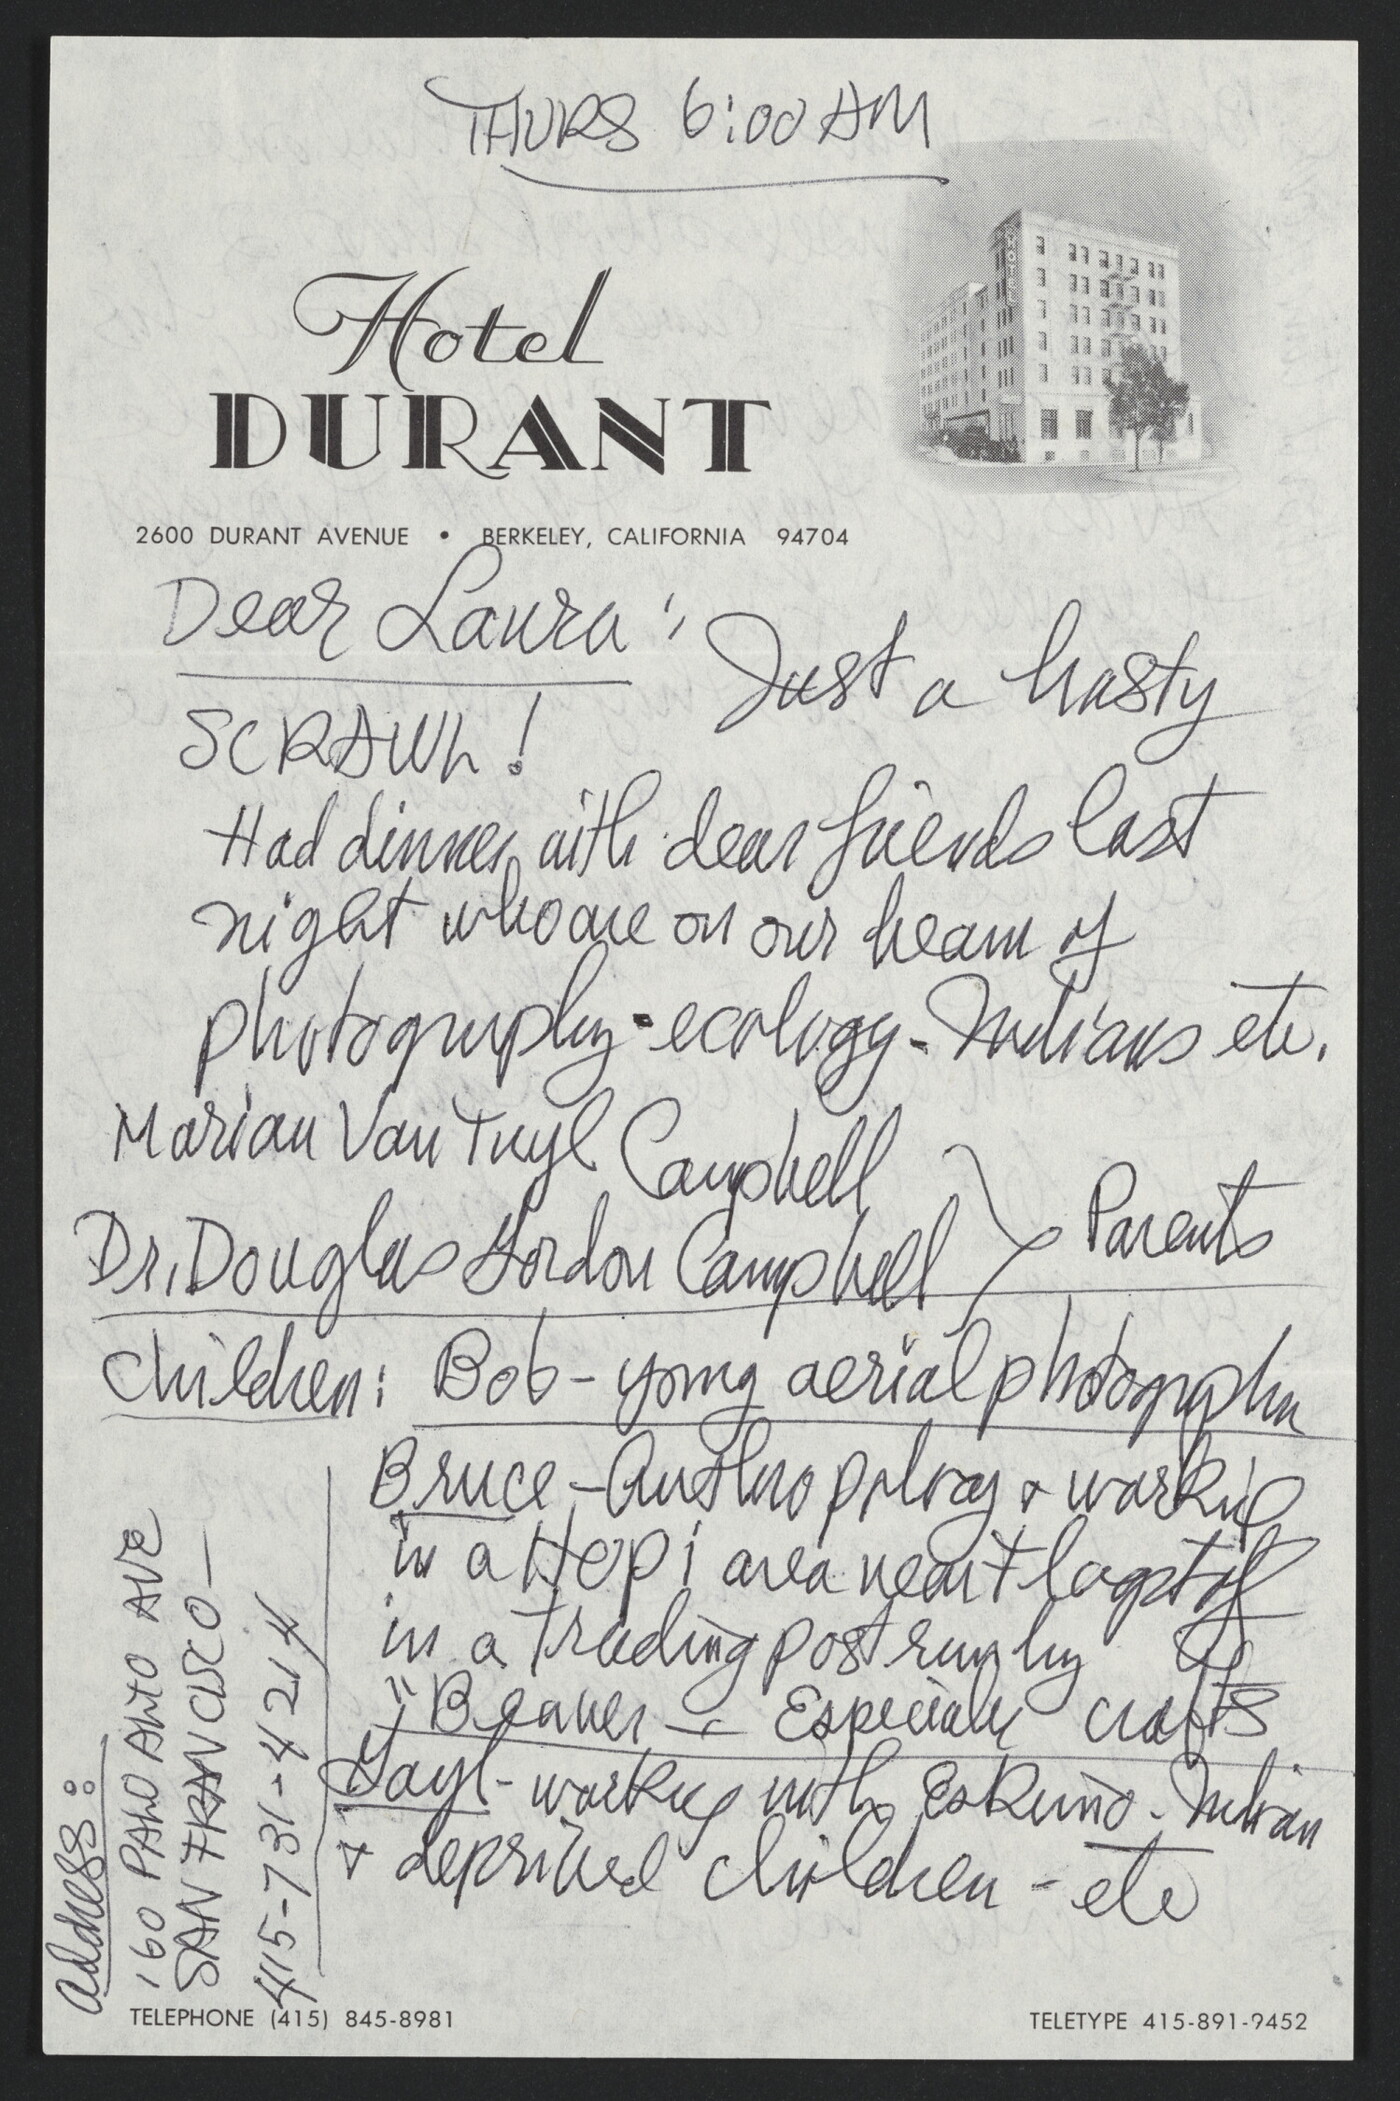 THURS 6:00 AM
HOTEL
Hotel
DURANT
2600 DURANT AVENUE • BERKELEY, CALIFORNIA 94704
Dear Laura: Just a hasty
SCRAWL!
Had dinner with dear friends last
night who are on our beam of
photography-ecology-Indians etc.
Marian Van Tuyl Campbell
Dr. Douglas Gordon Campbell } Parents
Children: Bob - young aerial photographer
Bruce - Anthropology & working
in a Hopi area near Flagstaff
in a trading post run by
"Beaver - Especially crafts
Gayl - working with Eskimo - Indian
& deprived children - etc
Address:
160 PALO ALTO AVE
SAN FRANCISCO —
415-731-4214
TELEPHONE (415) 845-8981
TELETYPE 415-891-9452